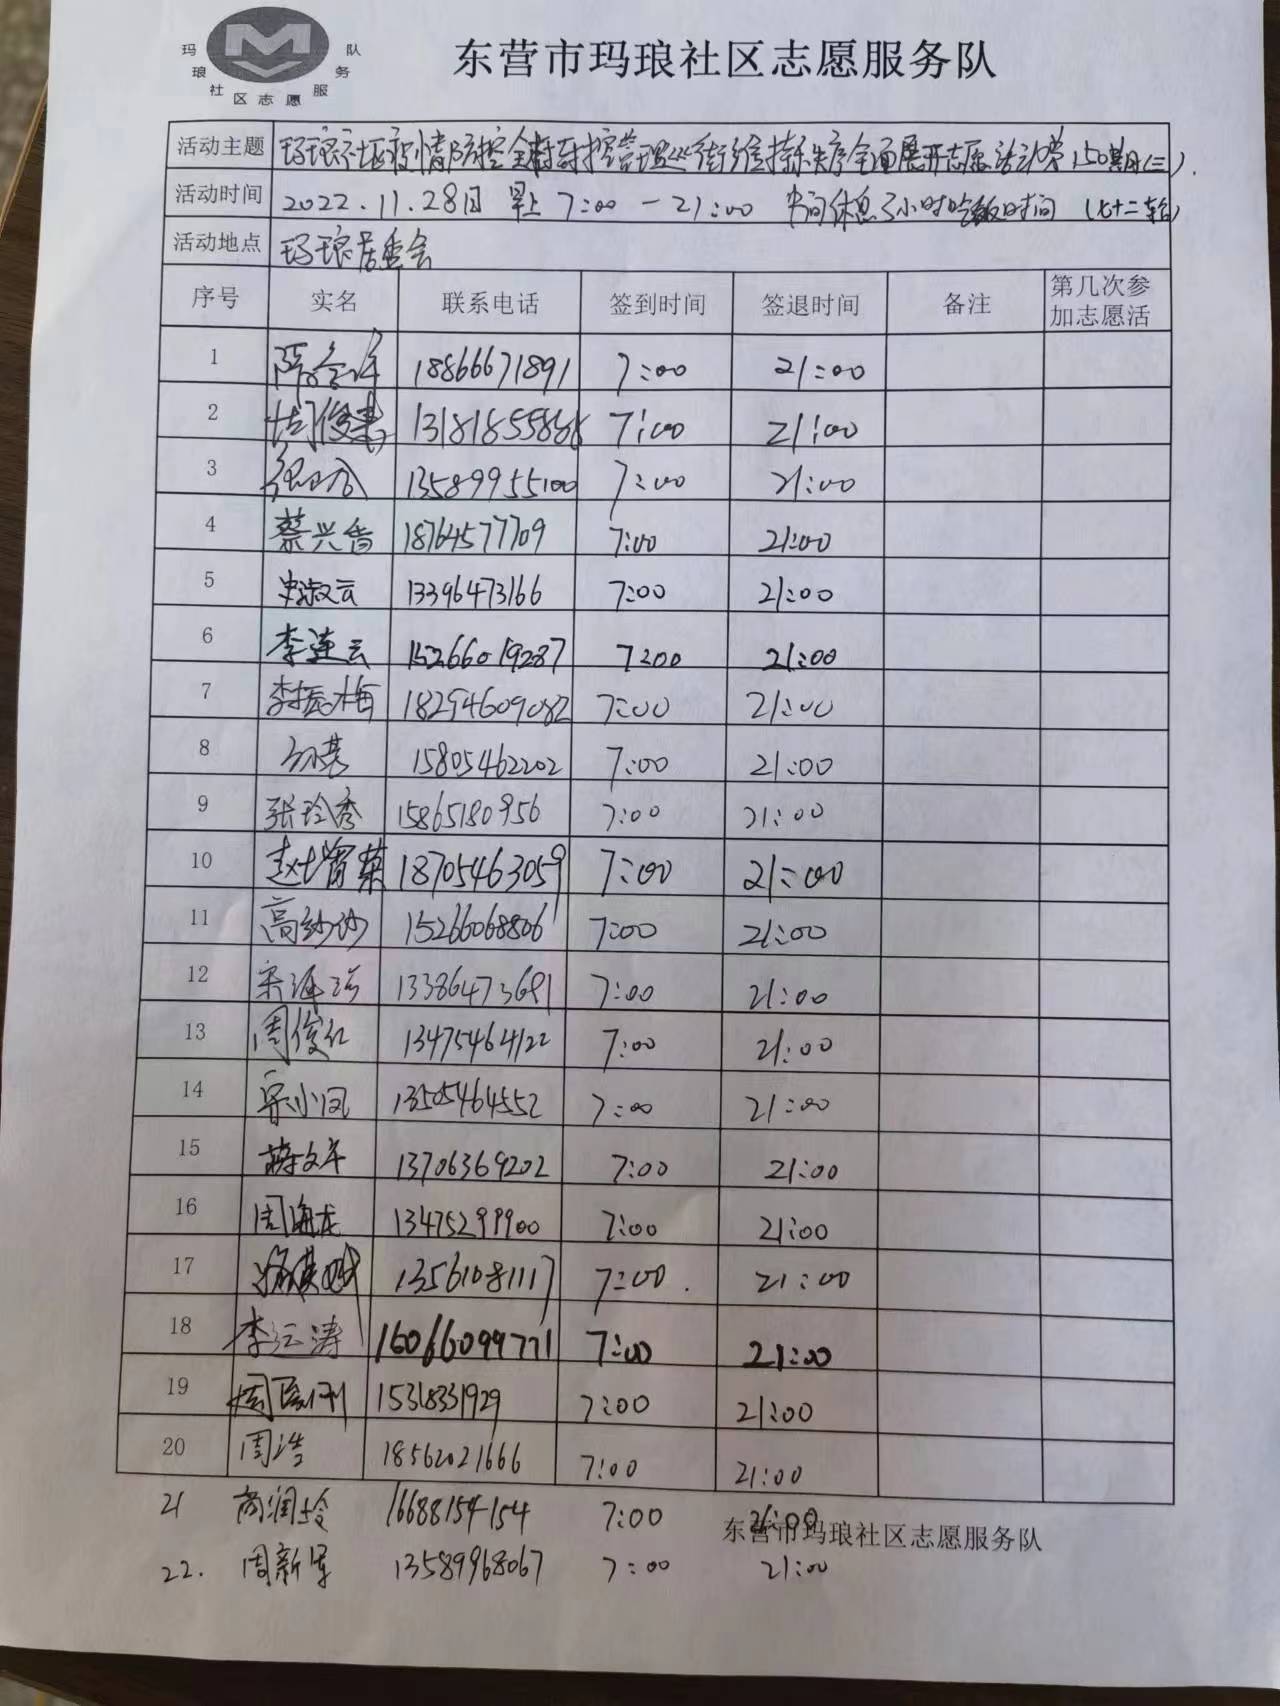 玛琅社区志愿服务队
东营市玛琅社区志愿服务队
活动主题 玛琅社区疫情防控全封控管理巡街维持秩序全面展开志愿活动第150期(三).
活动时间 2022.11.28日 早上 7:00-21:00 中间休息3小时吃饭时间 (七十二轮)
活动地点 玛琅居委会
序号 实名 联系电话 签到时间 签退时间 备注 第几次参加志愿活
1 18866671891 7:00 21:00
2 周俊书 13181855868 7:00 21:00
3 13589955100 7:00 21:00
4 蔡兴香 18764577709 7:00 21:00
5 史淑云 13396473166 7:00 21:00
6 李莲云 15266019287 7:00 21:00
7 李振梅 18294609082 7:00 21:00
8 15805462202 7:00 21:00
9 张玲秀 15865180956 7:00 21:00
10 赵增荣 18705463059 7:00 21:00
11 高纱纱 15266068806 7:00 21:00
12 宋海 13386473691 7:00 21:00
13 周俊红 13475464122 7:00 21:00
14 宗小凤 13505464552 7:00 21:00
15 蒋文军 13706369202 7:00 21:00
16 周海龙 13475299900 7:00 21:00
17 13561081117 7:00 21:00
18 李江涛 16066099771 7:00 21:00
19 15318331929 7:00 21:00
20 周浩 18562021666 7:00 21:00
21 商润玲 16688154154 7:00 21:00
东营市玛琅社区志愿服务队
22. 周新军 13589968067 7:00 21:00